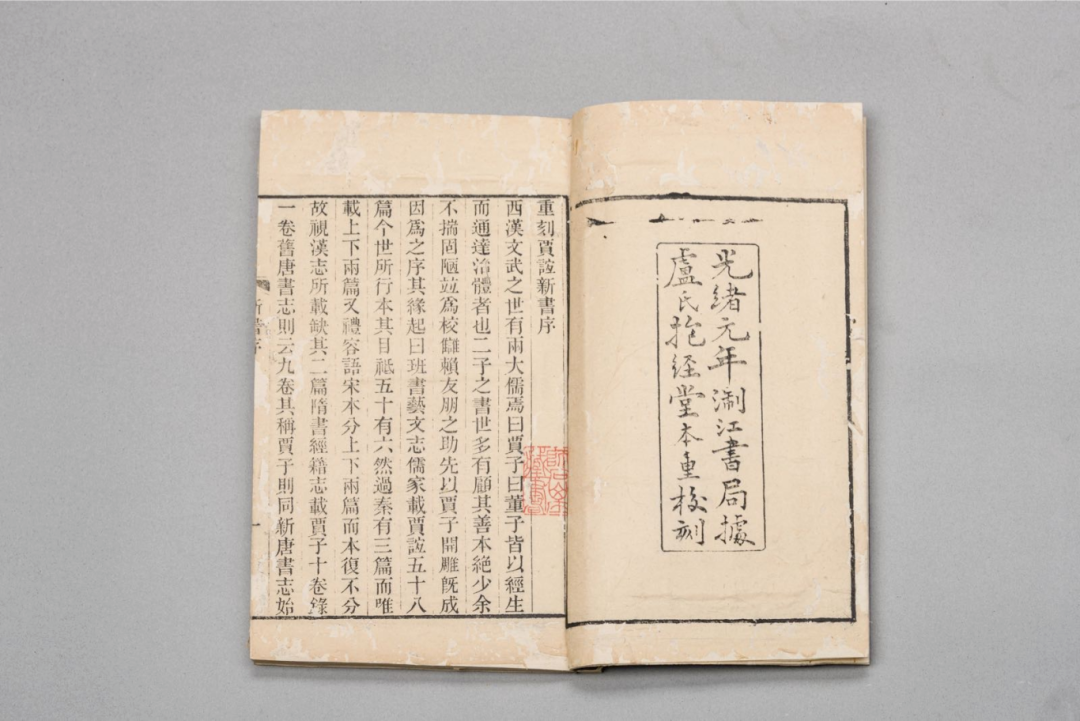 光緒元年浙江書局據
盧氏抱經堂本重校刻
重刻賈誼新書序
西漢文武之世有兩大儒焉曰賈子曰董子皆以經生
而通達治體者也二子之書世多有顧其善本絶少余
不揣固陋竝爲校讎賴友朋之助先以賈子開雕旣成
因爲之序其緣起曰班書藝文志儒家載賈誼五十八
篇今世所行本其目祗五十有六然過秦有三篇而唯
載上下兩篇又禮容語宋本分上下兩篇而本復不分
故視漢志所載缺其二篇隋書經籍志載賈子十卷錄
一卷舊唐書志則云九卷其稱賈子則同新唐書志始